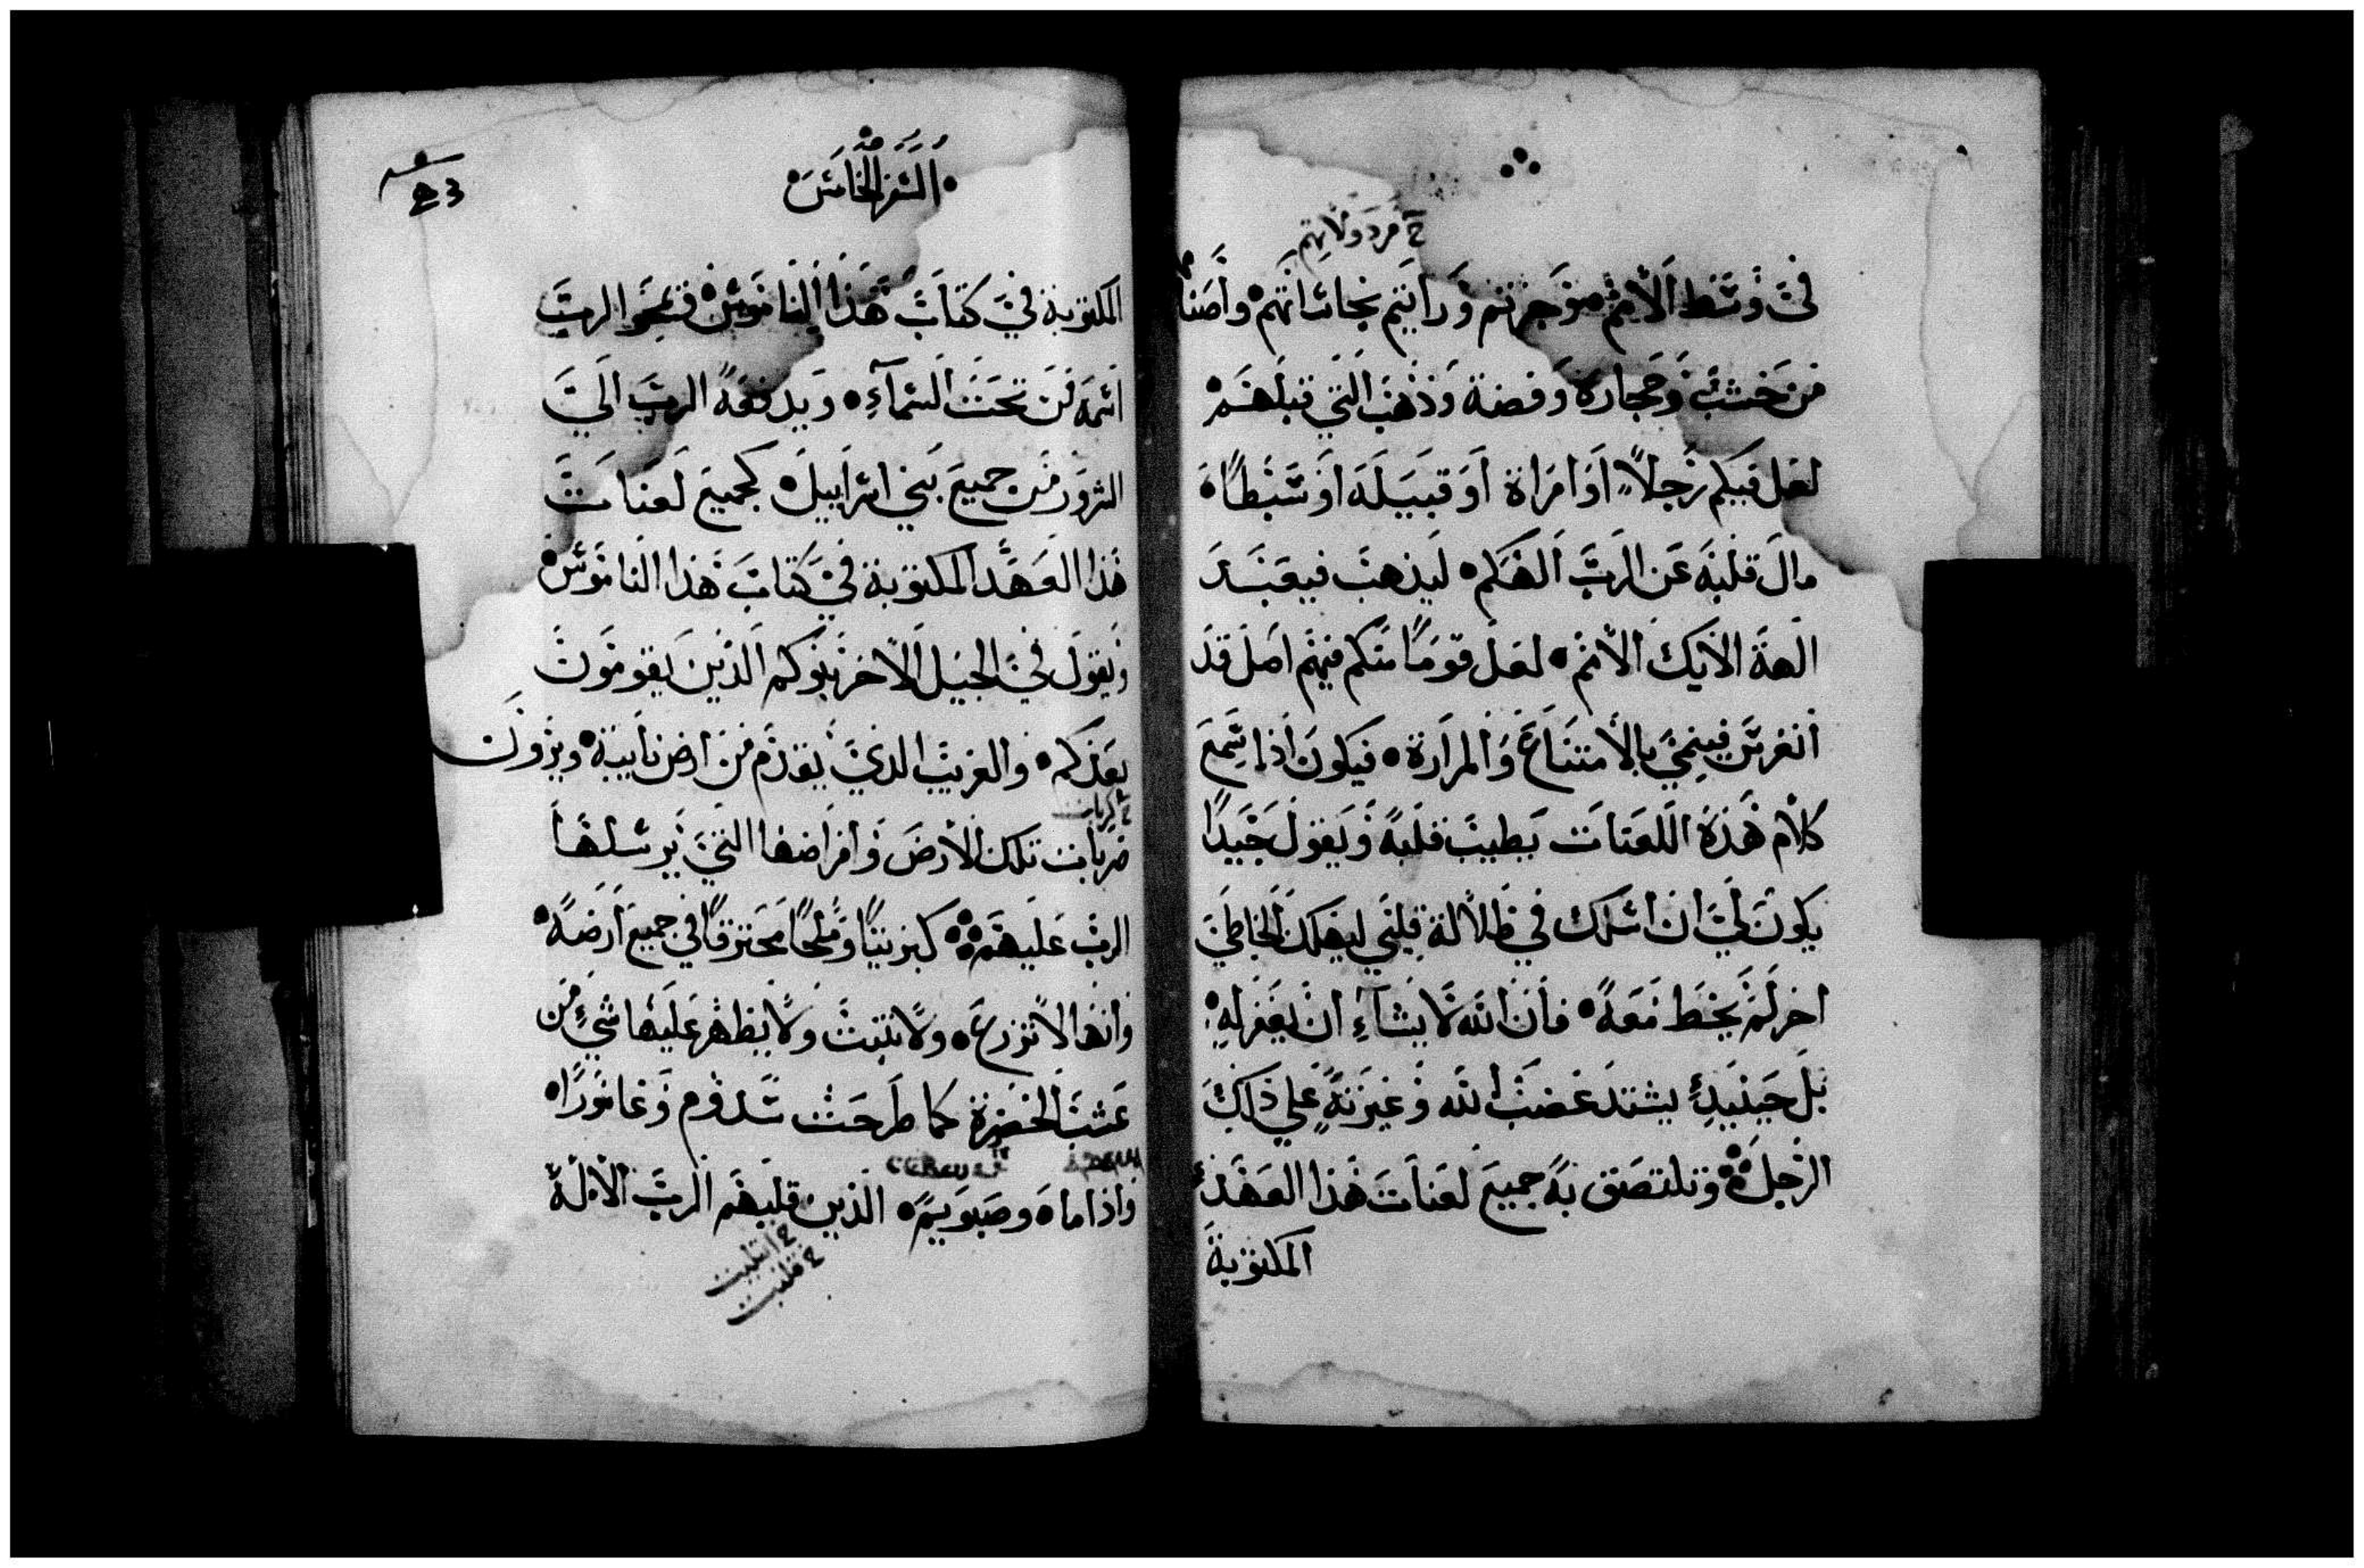 خ مردولاتهم
في وسط الامم موجزتم ورايتم نجاساتهم واصنا
من خشب وحجارة وفضة وذهب التي قبلهم
لعل فيكم رجلاً او امراة او قبيله او سبطاً
مال قلبه عن الرب الهكم ليذهب فيعبد
الهة الايك الامم لعل قوماً منكم فيهم اصل قد
انغرس فينمي بالامتناع والمرارة فيكون اذا سمع
كلام هذه اللعنات بطيب قلبه ويقول جيداً
يكون لي ان اسلك في ظلالة قلبي ليهلك الخاطي
اخر لم يخط معه فان الله لا يشاء ان يغفر له
بل حينيدٍ يشتد غضب الله وغيرته علي ذلك
الرجل وتلتصق به جميع لعنات هذا العهد
المكتوبة
السفر الخامس
المكتوبة في كتاب هذا الناموس فيمحو الرب
اسمه من تحت السمآء ويدفعه الرب الي
الشرور من جميع بني اسراييل كجميع لعنات
هذا العهد المكتوبة في كتاب هذا الناموس
ويقول في الجيل الاخر بنوكم الذين يقومون
بعدكم والغريب الذي يقدم من ارض نايية ويرون
ضربات تلك الارض وامراضها التي يرسلها
الرب عليهم كبريتاً وملحاً محترقاً في جميع ارضه
وانها لا تزرع ولا تنبت ولا يظهر عليها شيء من
عشب الخضرة كما طرحت سدوم وغاموراً
واذاماه وصبوييم الذين قلبهم الرب الاله
خ انقلبت
خ قلبت